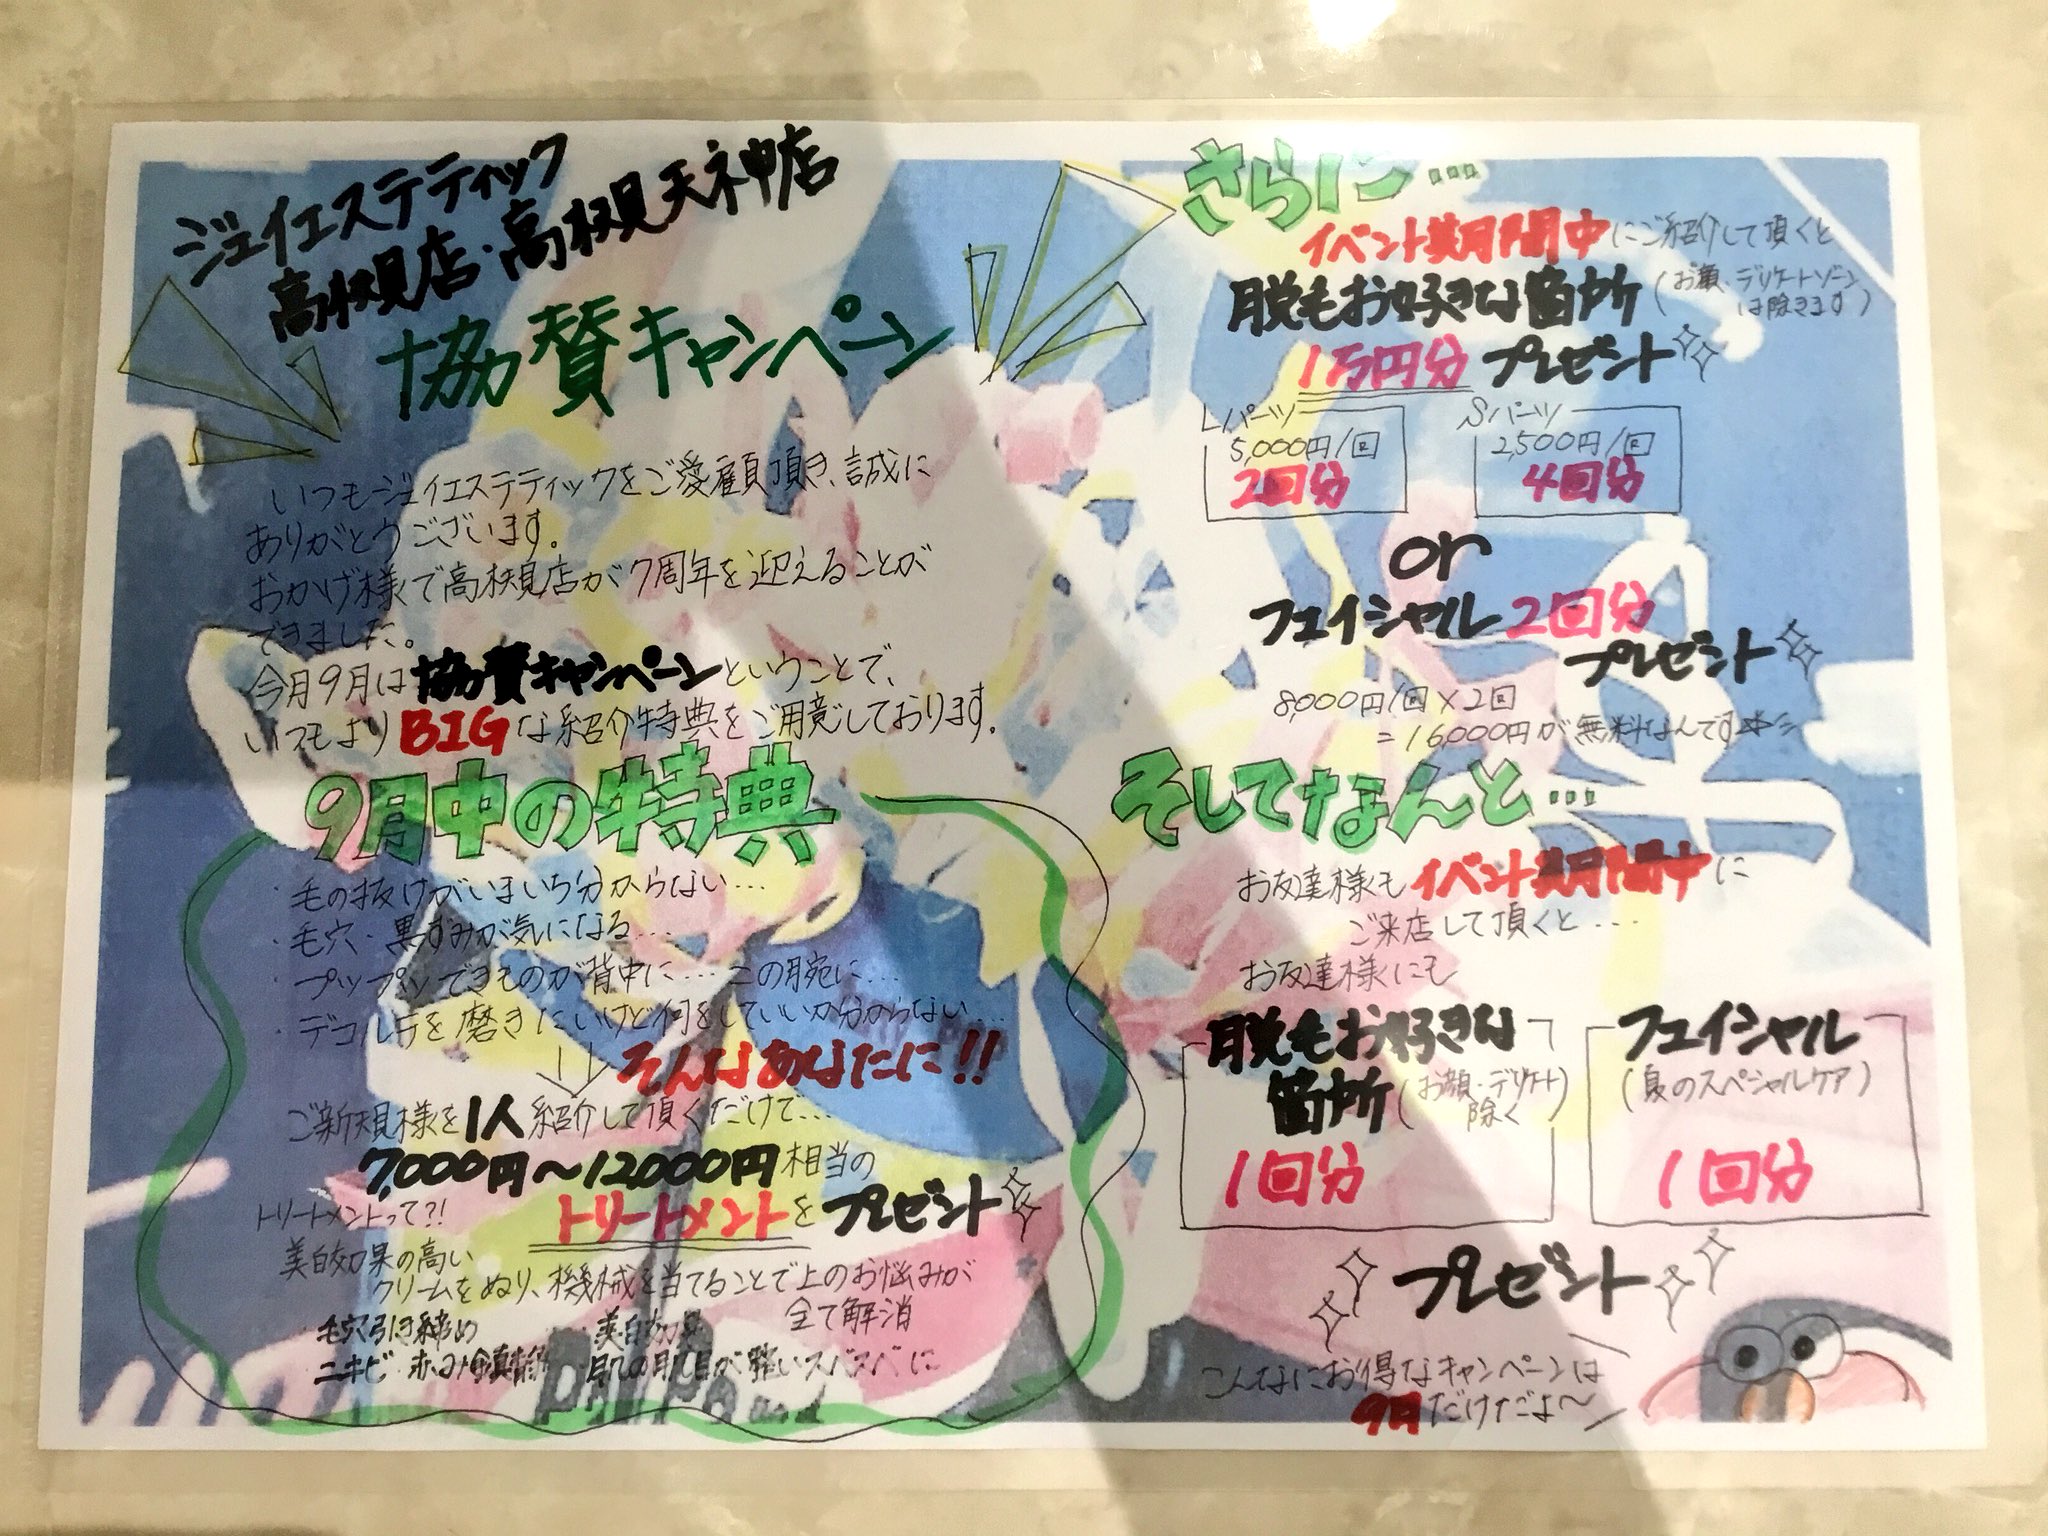 ジェイエステティック
高槻店・高槻天神店
協賛キャンペーン
いつもジェイエステティックをご愛顧頂き、誠に
ありがとうございます。
おかげ様で高槻店が7周年を迎えることが
できました。
今月9月は協賛キャンペーンということで、
いつもよりBIGな紹介特典をご用意しております。
9月中の特典
・毛の抜けがいまいち分からない…
・毛穴・黒ずみが気になる…
・プップツできものが背中に…この腕に…
・デコルテを磨きたいけど何をしていいか分からない…
そんなあなたに!!
ご新規様を1人紹介して頂くだけで…
7,000円〜12,000円相当の
トリートメントをプレゼント
トリートメントって?!
美白効果の高い
クリームをぬり、機械を当てることで上のお悩みが
全て解消
・毛穴引き締め ・美白効果
・ニキビ・赤み鎮静 ・肌の肌目が整いスベスベに
さらに…
イベント期間中にご紹介して頂くと
脱毛お好きな箇所(お顔・デリケートゾーンは除きます)
1万円分プレゼント
Lパーツ
5,000円/回
2回分
Sパーツ
2,500円/回
4回分
or
フェイシャル2回分
プレゼント
8,000円/回×2回
=16,000円が無料なんです
そしてなんと…
お友達様もイベント期間中に
ご来店して頂くと…
お友達様にも
脱毛お好きな
箇所(お顔・デリケート除く)
1回分
フェイシャル
(夏のスペシャルケア)
1回分
プレゼント
こんなにお得なキャンペーンは
9月だけだよ〜